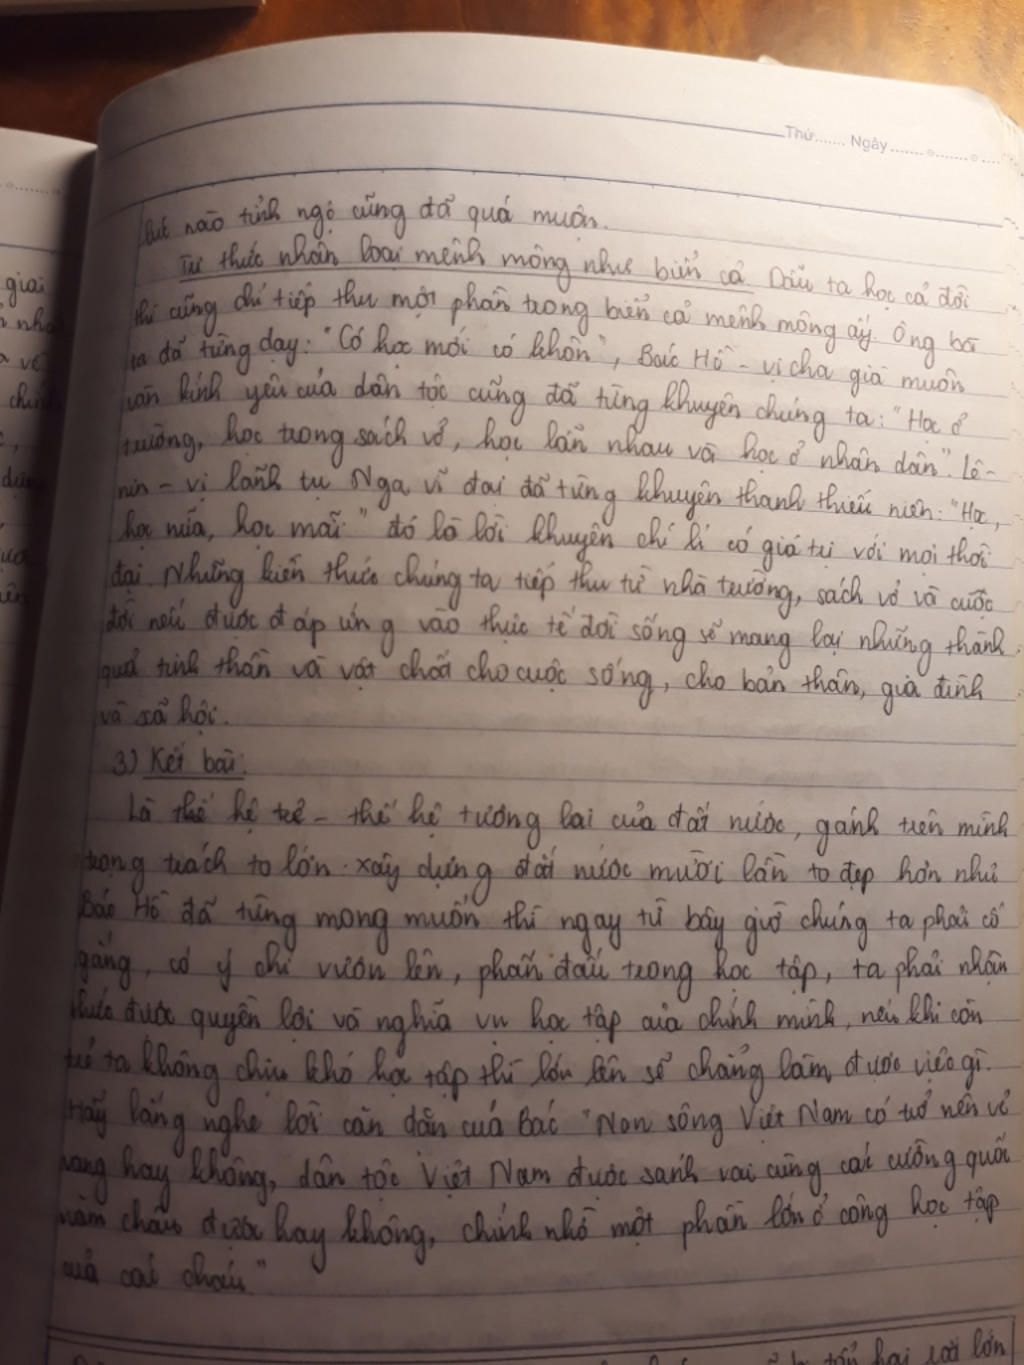 Thứ....... Ngày
lúc nào tỉnh ngộ cũng đã quá muộn.
Tri thức nhân loại mênh mông như biển cả Dẫu ta học cả đời
thì cũng chỉ tiếp thu một phần trong biển cả mênh mông ấy. Ông bà
ta đã từng dạy: "Có học mới có khôn", Bác Hồ - vị cha già muôn
vàn kính yêu của dân tộc cũng đã từng khuyên chúng ta: "Học ở
trường, học trong sách vở, học lẫn nhau và học ở nhân dân". Lê-
nin - vị lãnh tụ Nga vĩ đại đã từng khuyên thanh thiếu niên: "Học,
học nữa, học mãi" đó là lời khuyên chí lí có giá trị với mọi thời
đại. Những kiến thức chúng ta tiếp thu từ nhà trường, sách vở và cuộc
đời nếu được đáp ứng vào thực tế đời sống sẽ mang lại những thành
quả tinh thần và vật chất cho cuộc sống, cho bản thân, gia đình
và xã hội.
3) Kết bài:
Là thế hệ trẻ - thế hệ tương lai của đất nước, gánh trên mình
trọng trách to lớn xây dựng đất nước mười lần to đẹp hơn như
Bác Hồ đã từng mong muốn thì ngay từ bây giờ chúng ta phải cố
gắng, có ý chí vươn lên, phấn đấu trong học tập, ta phải nhận
thức được quyền lợi và nghĩa vụ học tập của chính mình, nếu khi còn
trẻ ta không chịu khó học tập thì lớn lên sẽ chẳng làm được việc gì.
Hãy lắng nghe lời căn dặn của Bác "Non sông Việt Nam có trở nên vẻ
vang hay không, dân tộc Việt Nam được sánh vai cùng các cường quốc
năm châu được hay không, chính nhờ một phần lớn ở công học tập
của các cháu"